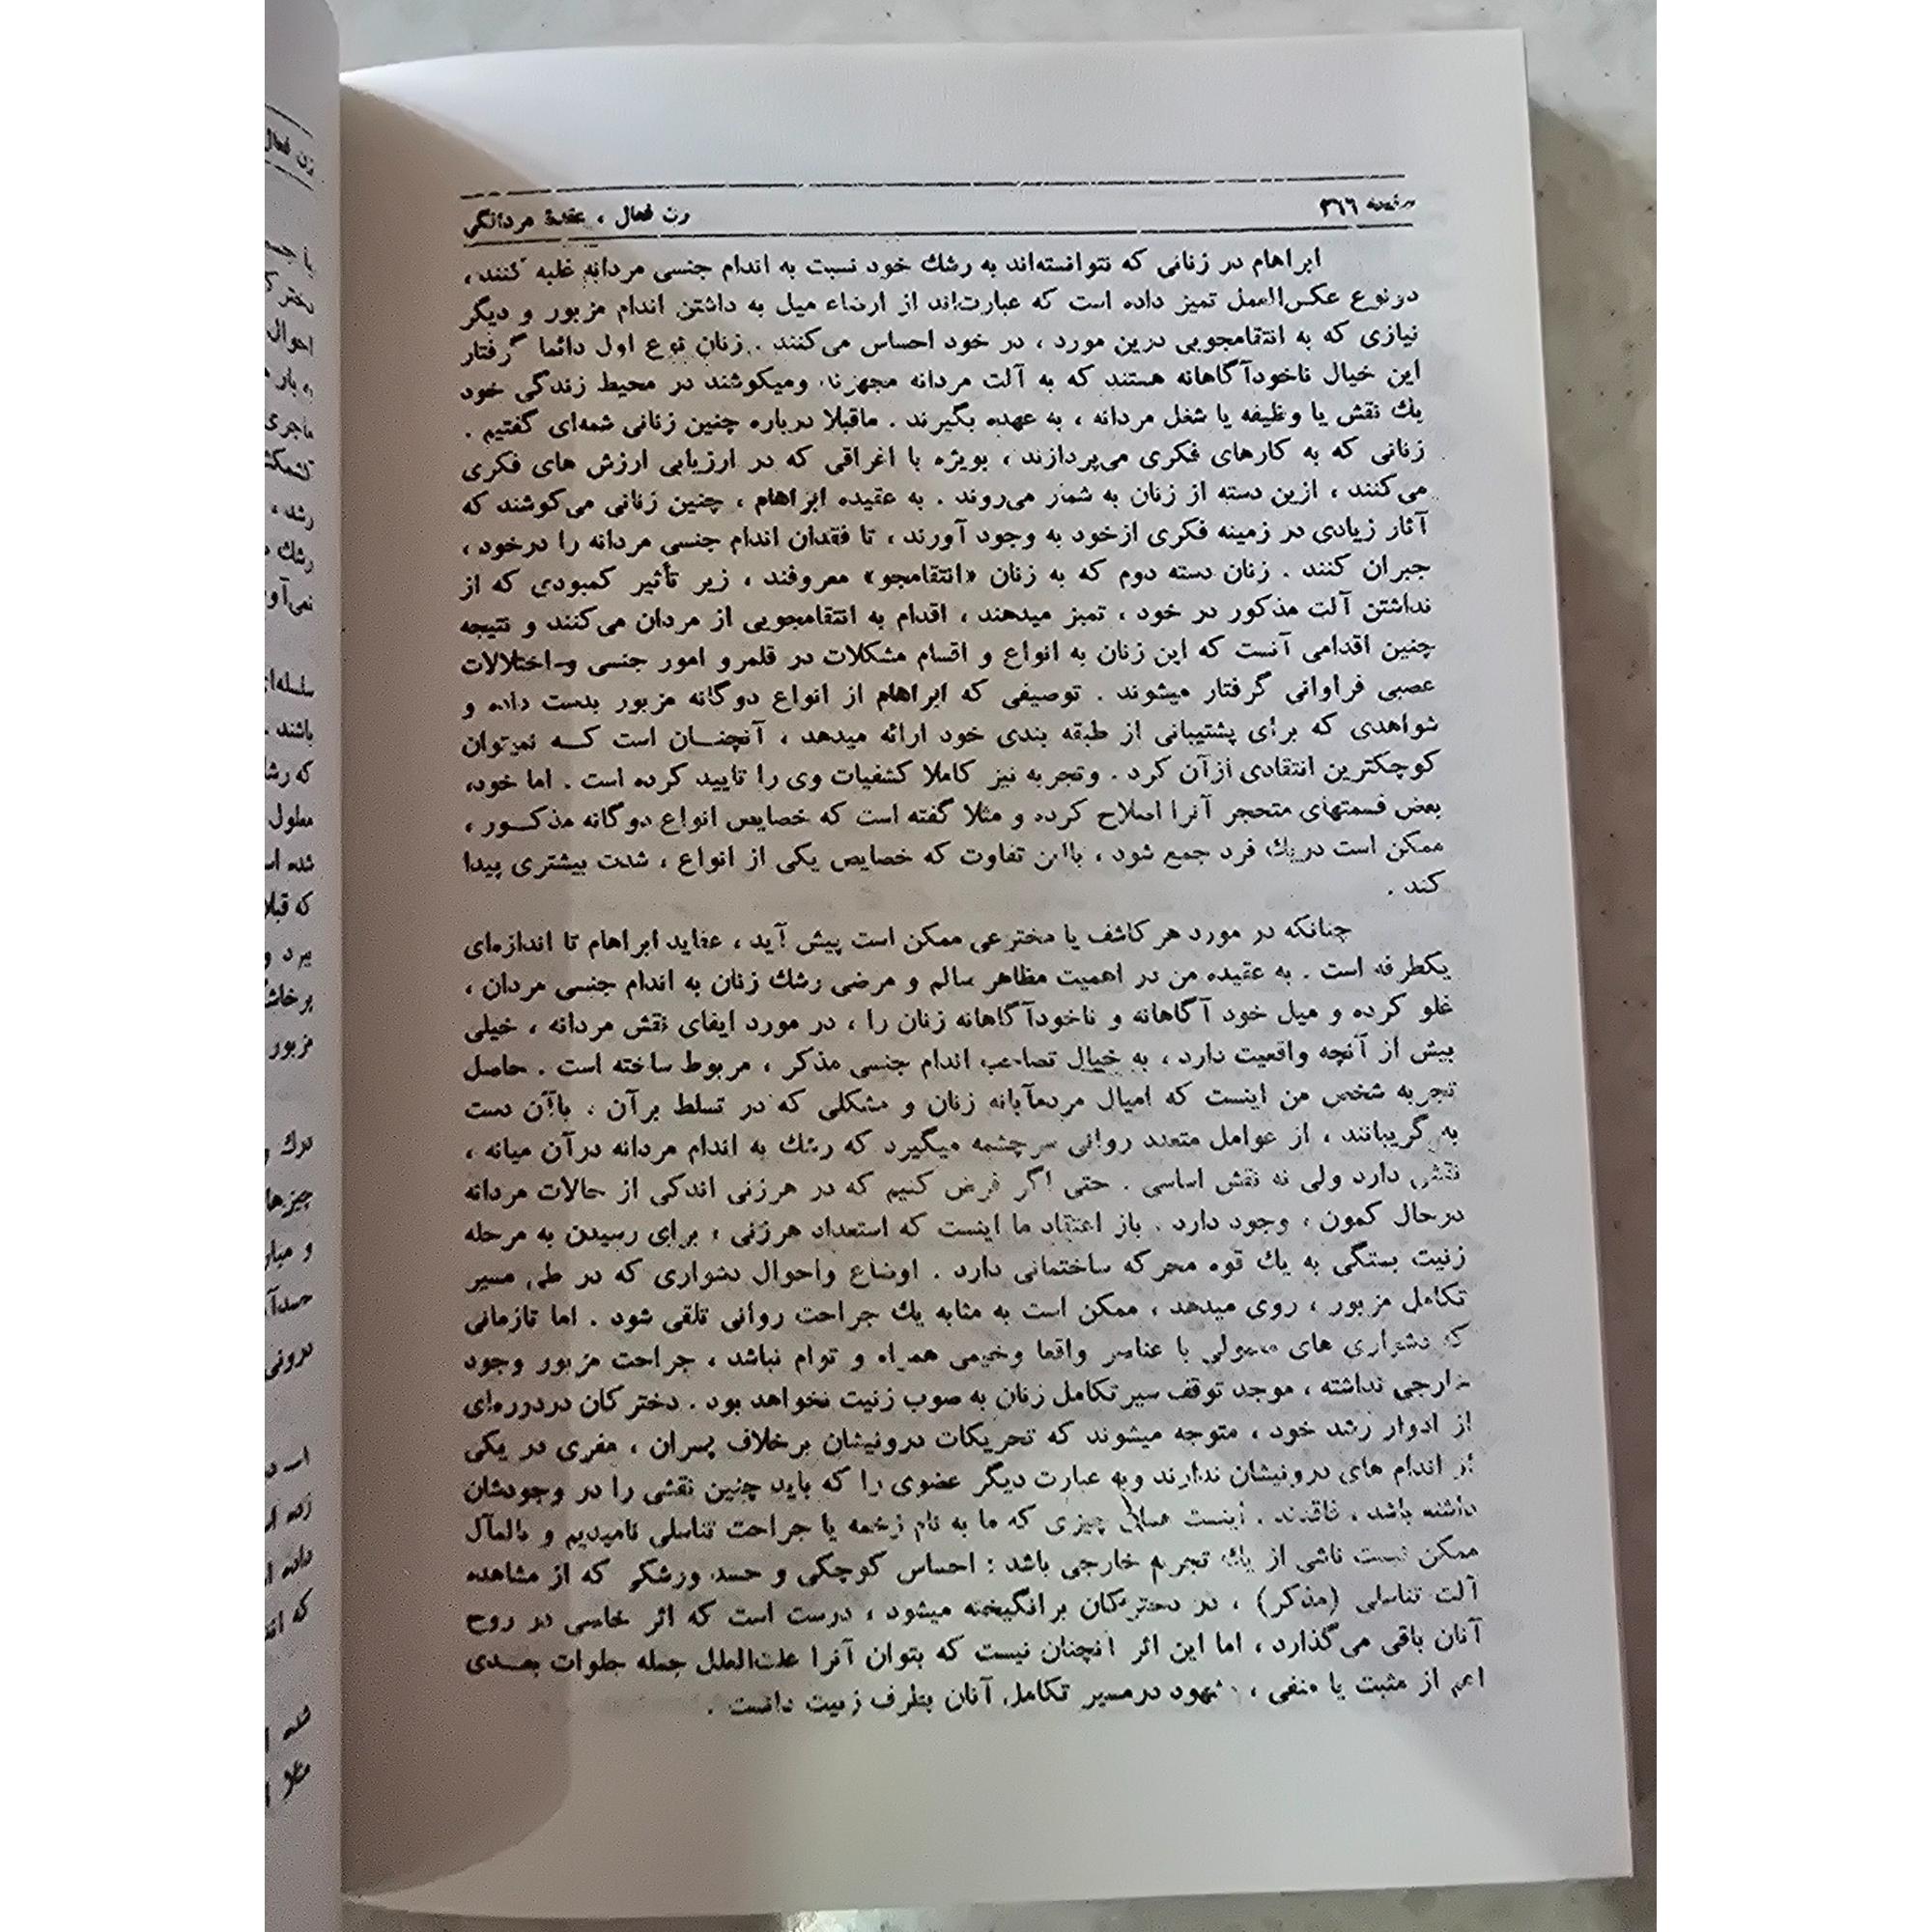 صفحه ۳۶۶
زن فعال ، عقدهٔ مردانگی
ابراهام در زنانی که نتوانسته‌اند به رشك خود نسبت به اندام جنسی مردانه غلبه کنند ،
دونوع عکس‌العمل تمیز داده است که عبارت‌اند از ارضاء میل به داشتن اندام مزبور و دیگر
نیازی که به انتقامجویی درین مورد ، در خود احساس می‌کنند . زنان نوع اول دائما گرفتار
این خیال ناخودآگاهانه هستند که به آلت مردانه مجهزند ومیکوشند در محیط زندگی خود
یك نقش یا وظیفه یا شغل مردانه ، به عهده بگیرند . ماقبلا درباره چنین زنانی شمه‌ای گفتیم .
زنانی که به کارهای فکری می‌پردازند ، بویژه با اغراقی که در ارزیابی ارزش های فکری
می‌کنند ، ازین دسته از زنان به شمار می‌روند . به عقیده ابراهام ، چنین زنانی می‌کوشند که
آثار زیادی در زمینه فکری ازخود به وجود آورند ، تا فقدان اندام جنسی مردانه را درخود ،
جبران کنند . زنان دسته دوم که به زنان «انتقامجو» معروفند ، زیر تأثیر کمبودی که از
نداشتن آلت مذکور در خود ، تمیز میدهند ، اقدام به انتقامجویی از مردان می‌کنند و نتیجه
چنین اقدامی آنست که این زنان به انواع و اقسام مشکلات در قلمرو امور جنسی و اختلالات
عصبی فراوانی گرفتار میشوند . توصیفی که ابراهام از انواع دوگانه مزبور بدست داده و
شواهدی که برای پشتیبانی از طبقه بندی خود ارائه میدهد ، آنچنـان است کـه نمیتوان
کوچکترین انتقادی ازآن کرد . وتجربه نیز کاملا کشفیات وی را تایید کرده است . اما خود،
بعض قسمتهای متحجر آنرا اصلاح کرده و مثلا گفته است که خصایص انواع دوگانه مذکـور ،
ممکن است دریك فرد جمع شود ، بااین تفاوت که خصایص یکی از انواع ، شدت بیشتری پیدا
کند .
چنانکه در مورد هر کاشف یا مخترعی ممکن است پیش آید ، عقاید ابراهام تا اندازه‌ای
یکطرفه است . به عقیده من در اهمیت مظاهر سالم و مرضی رشك زنان به اندام جنسی مردان ،
غلو کرده و میل خود آگاهانه و ناخودآگاهانه زنان را ، در مورد ایفای نقش مردانه ، خیلی
بیش از آنچه واقعیت دارد ، به خیال تصاحب اندام جنسی مذکر ، مربوط ساخته است . حاصل
تجربه شخص من اینست که امیال مردمآبانه زنان و مشکلی که در تسلط برآن ، باآن دست
به گریبانند ، از عوامل متعدد روانی سرچشمه میگیرد که رشك به اندام مردانه درآن میانه ،
نقش دارد ولی نه نقش اساسی . حتی اگر فرض کنیم که در هرزنی اندکی از حالات مردانه
درحال کمون ، وجود دارد . باز اعتقاد ما اینست که استعداد هرزنی ، برای رسیدن به مرحله
زنیت بستگی به یك قوه محرکه ساختمانی دارد . اوضاع واحوال دشواری که در طی مسیر
تکامل مزبور ، روی میدهد ، ممکن است به مثابه یك جراحت روانی تلقی شود . اما تازمانی
که دشواری های معمولی با عناصر واقعا وخیمی همراه و توام نباشد ، جراحت مزبور وجود
خارجی نداشته ، موجد توقف سیر تکامل زنان به صوب زنیت نخواهد بود . دختر کان دردوره‌ای
از ادوار رشد خود ، متوجه میشوند که تحریکات درونیشان برخلاف پسران ، مفری در یکی
از اندام های درونیشان ندارند وبه عبارت دیگر عضوی را که باید چنین نقشی را در وجودشان
داشته باشد ، فاقدند . اینست همان چیزی که ما به نام زخمه یا جراحت تناسلی نامیدیم و بالمآل
ممکن نیست ناشی از یك تجربه خارجی باشد : احساس کوچکی و حسد ورشکی که از مشاهده
آلت تناسلی (مذکر) ، در دخترکان برانگیخته میشود ، درست است که اثر خاصی در روح
آنان باقی می‌گذارد ، اما این اثر آنچنان نیست که بتوان آنرا علت‌العلل جمله جلوات بعـدی
اعم از مثبت یا منفی ، مشهود درمسیر تکامل آنان بطرف زنیت دانست .